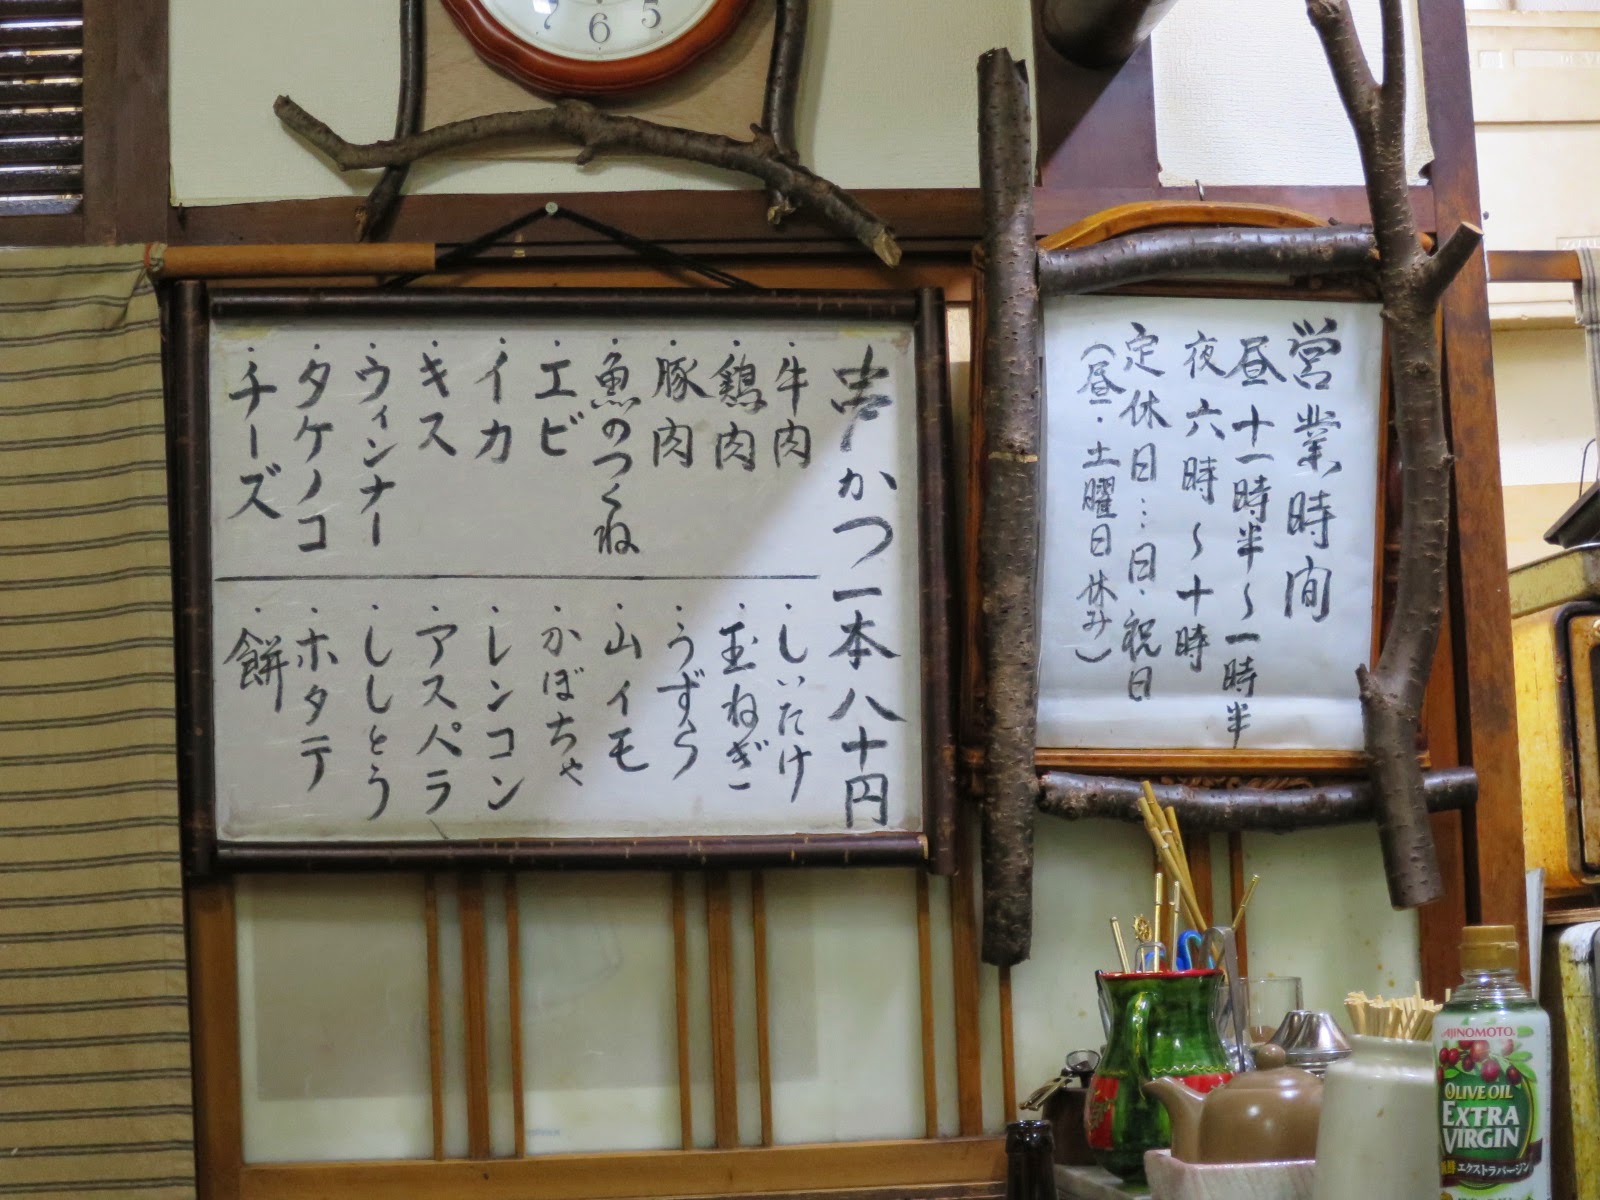 7 6 5
串かつ一本八十円
・牛肉
・鶏肉
・豚肉
・魚のつくね
・エビ
・イカ
・キス
・ウィンナー
・タケノコ
・チーズ
・しいたけ
・玉ねぎ
・うずら
・山イモ
・かぼちゃ
・レンコン
・アスパラ
・ししとう
・ホタテ
・餅
営業時間
昼十一時半〜一時半
夜六時〜十時
定休日…日・祝日
(昼・土曜日休み)
AJINOMOTO
OLIVE OIL
EXTRA
VIRGIN
エクストラバージン